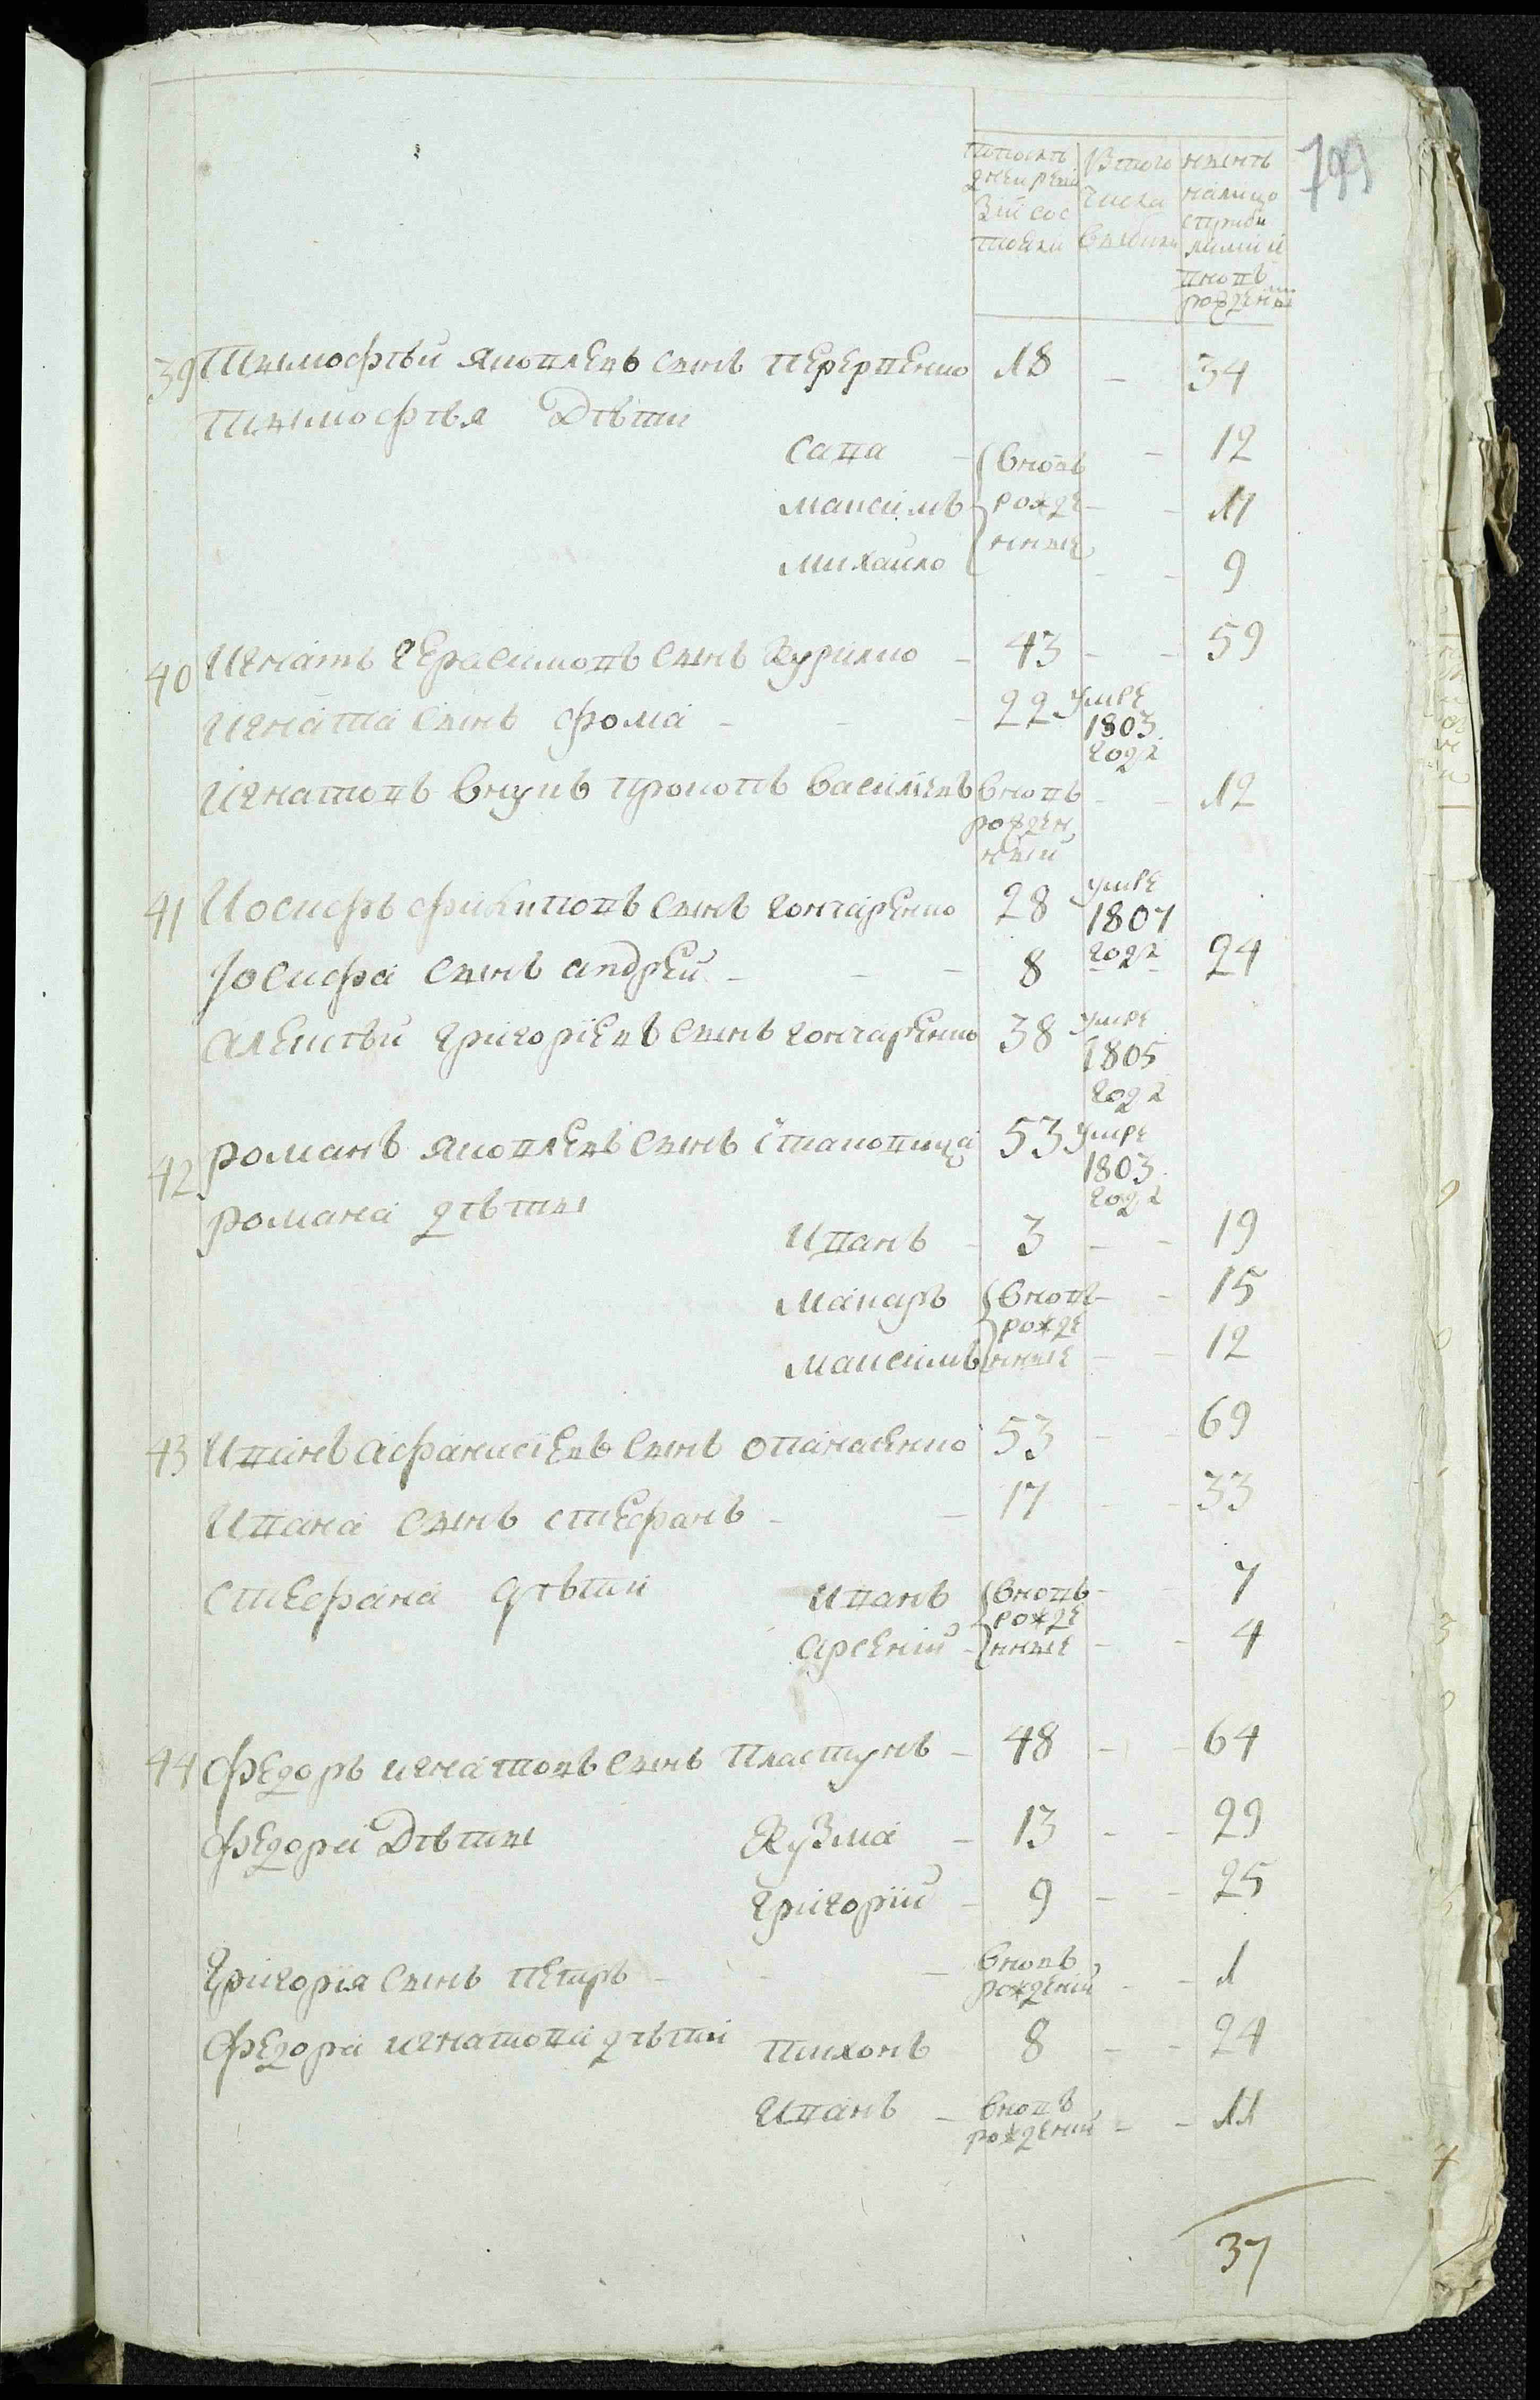 799
по
ревизіи сос
тояли
В того
числа
выбыли
нынѣ
налицо
вновь
рожденны
39 Тымофѣй Яковлевъ сынъ Перервенко 18 - 34
Тымофѣя Дѣти
Сава - вновь - 12
Максимъ рожде - - 11
Михайло нные - - 9
40 Игнатъ Герасимовъ сынъ Курилко - 43 - - 59
Игната сынъ Фома - - - 22 умре
1803
года
Игнатовъ внукъ Прокопъ Васильевъ вновь - - 12
рожден
ный
41 Иосифъ сынъ Гончаренко 28 умре
1807
года
Іосифа сынъ Андрей - - - 8 24
Алексѣй Григоріевъ сынъ Гончаренко 38 умре
1805
года
42 Романъ Яковлевъ сынъ 53 умре
1803
года
Романа дѣты
Иванъ - 3 - - 19
Макаръ вновь - - 15
рожде
Максимъ нные - - 12
43 Иванъ Афанасіевъ сынъ Опанасенко 53 - - 69
Ивана сынъ Стефанъ - - 17 - - 33
Стефана дѣти Иванъ вновь - - 7
рожде
Арсеній - нные - - 4
44 Федоръ Игнатовъ сынъ Пластунъ - 48 - - 64
Федора Дѣты Кузма - 13 - - 29
Григорій - 9 - - 25
Григорія сынъ Петръ - - - вновь
рожденій - - 1
Федора Игнатова дѣти Тихонъ 8 - - 24
Иванъ - вновь
рожденій - - 11
37